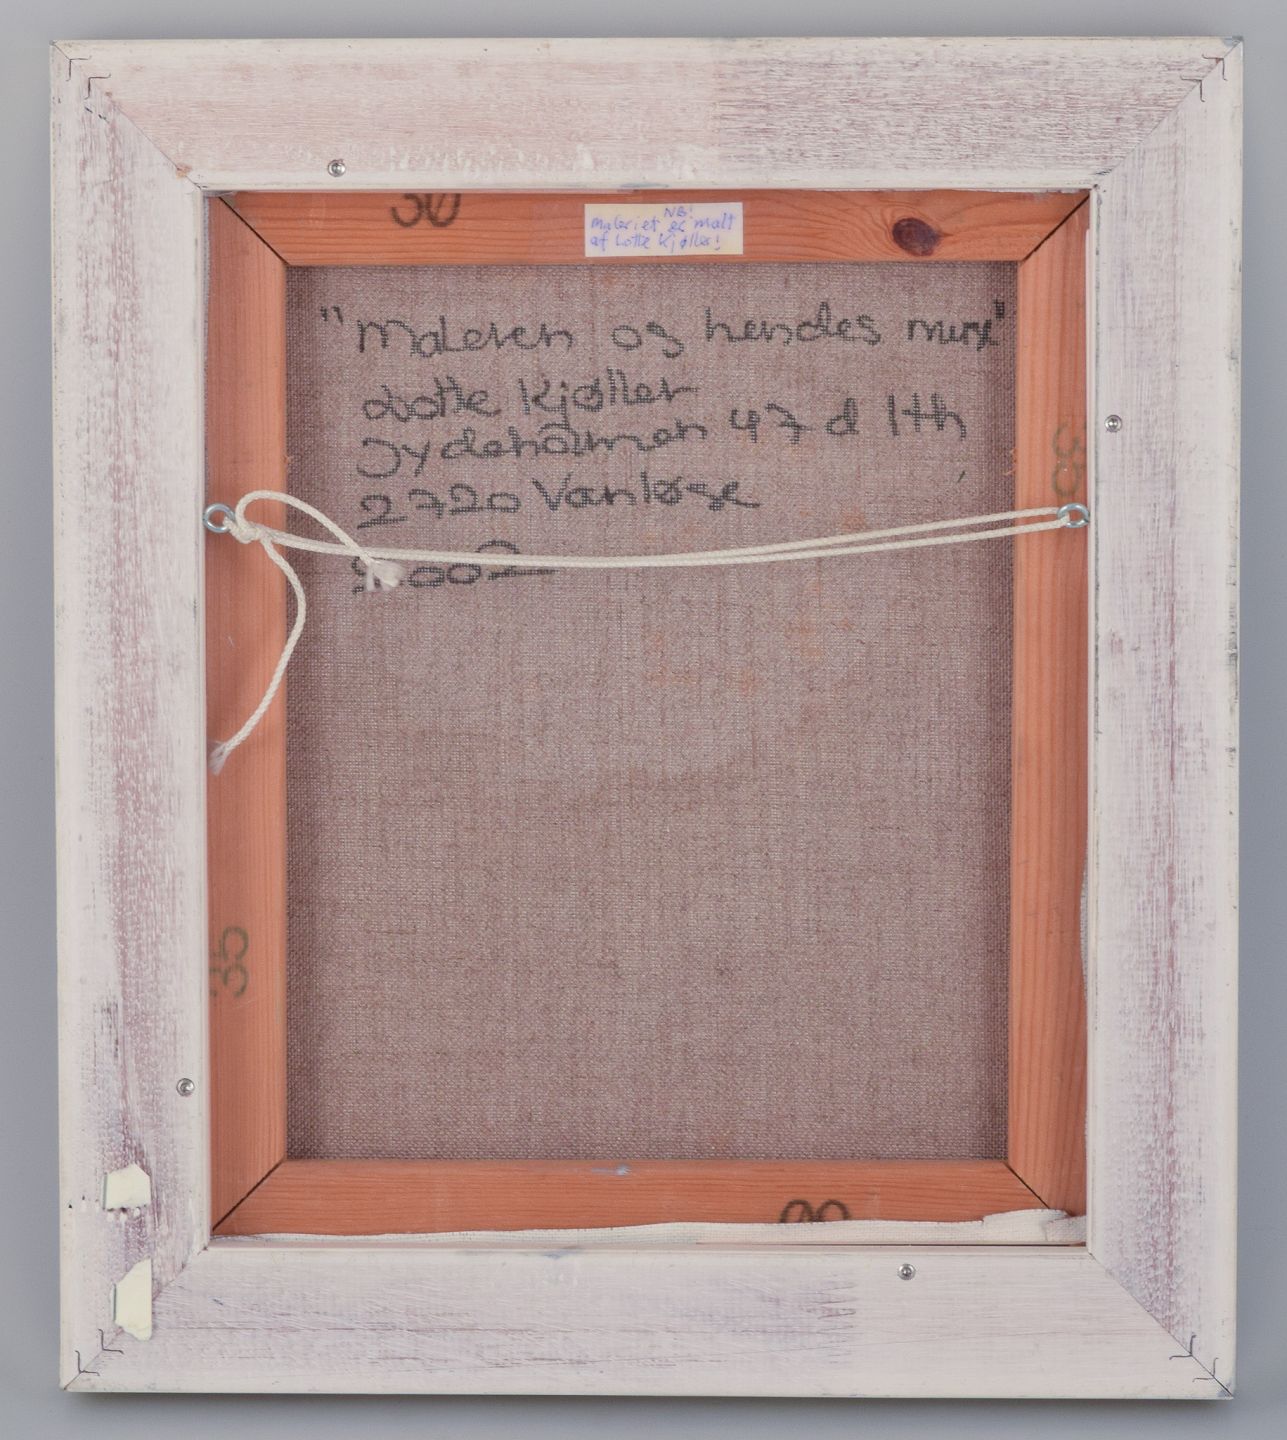 30
NB!
Maleriet er malt
af Lotte Kjøller!
"Maleren og hendes
Lotte Kjøller
Jydeholmen 47 d 1th
2720 Vanløse
2002
35